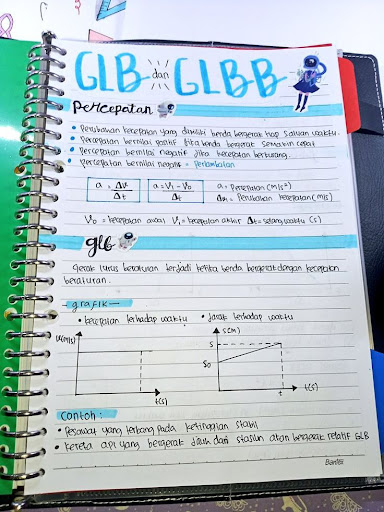 GLB dan GLBB
percepatan
• Perubahan kecepatan yang dimiliki benda bergerak tiap satuan waktu.
• Percepatan bernilai positif jika benda bergerak semakin cepat
• Percepatan bernilai negatif jika kecepatan berkurang.
• percepatan bernilai negatif = Perlambatan
a = Δv/Δt   a = V₁ - V₀/Δt   a = Percepatan (m/s²)
Δv = Perubahan kecepatan (m/s)
V₀ = kecepatan awal V₁ = kecepatan akhir Δt = selang waktu (s)
glb
Gerak lurus beraturan terjadi ketika benda bergerak dengan kecepatan
beraturan.
grafik
• kecepatan terhadap waktu • jarak terhadap waktu
V(m/s) s(m)
s
S₀
t(s) t t(s)
contoh:
• Pesawat yang terbang pada ketinggian stabil
• Kereta api yang bergerak jauh dari stasiun akan bergerak relatif GLB
Bantex